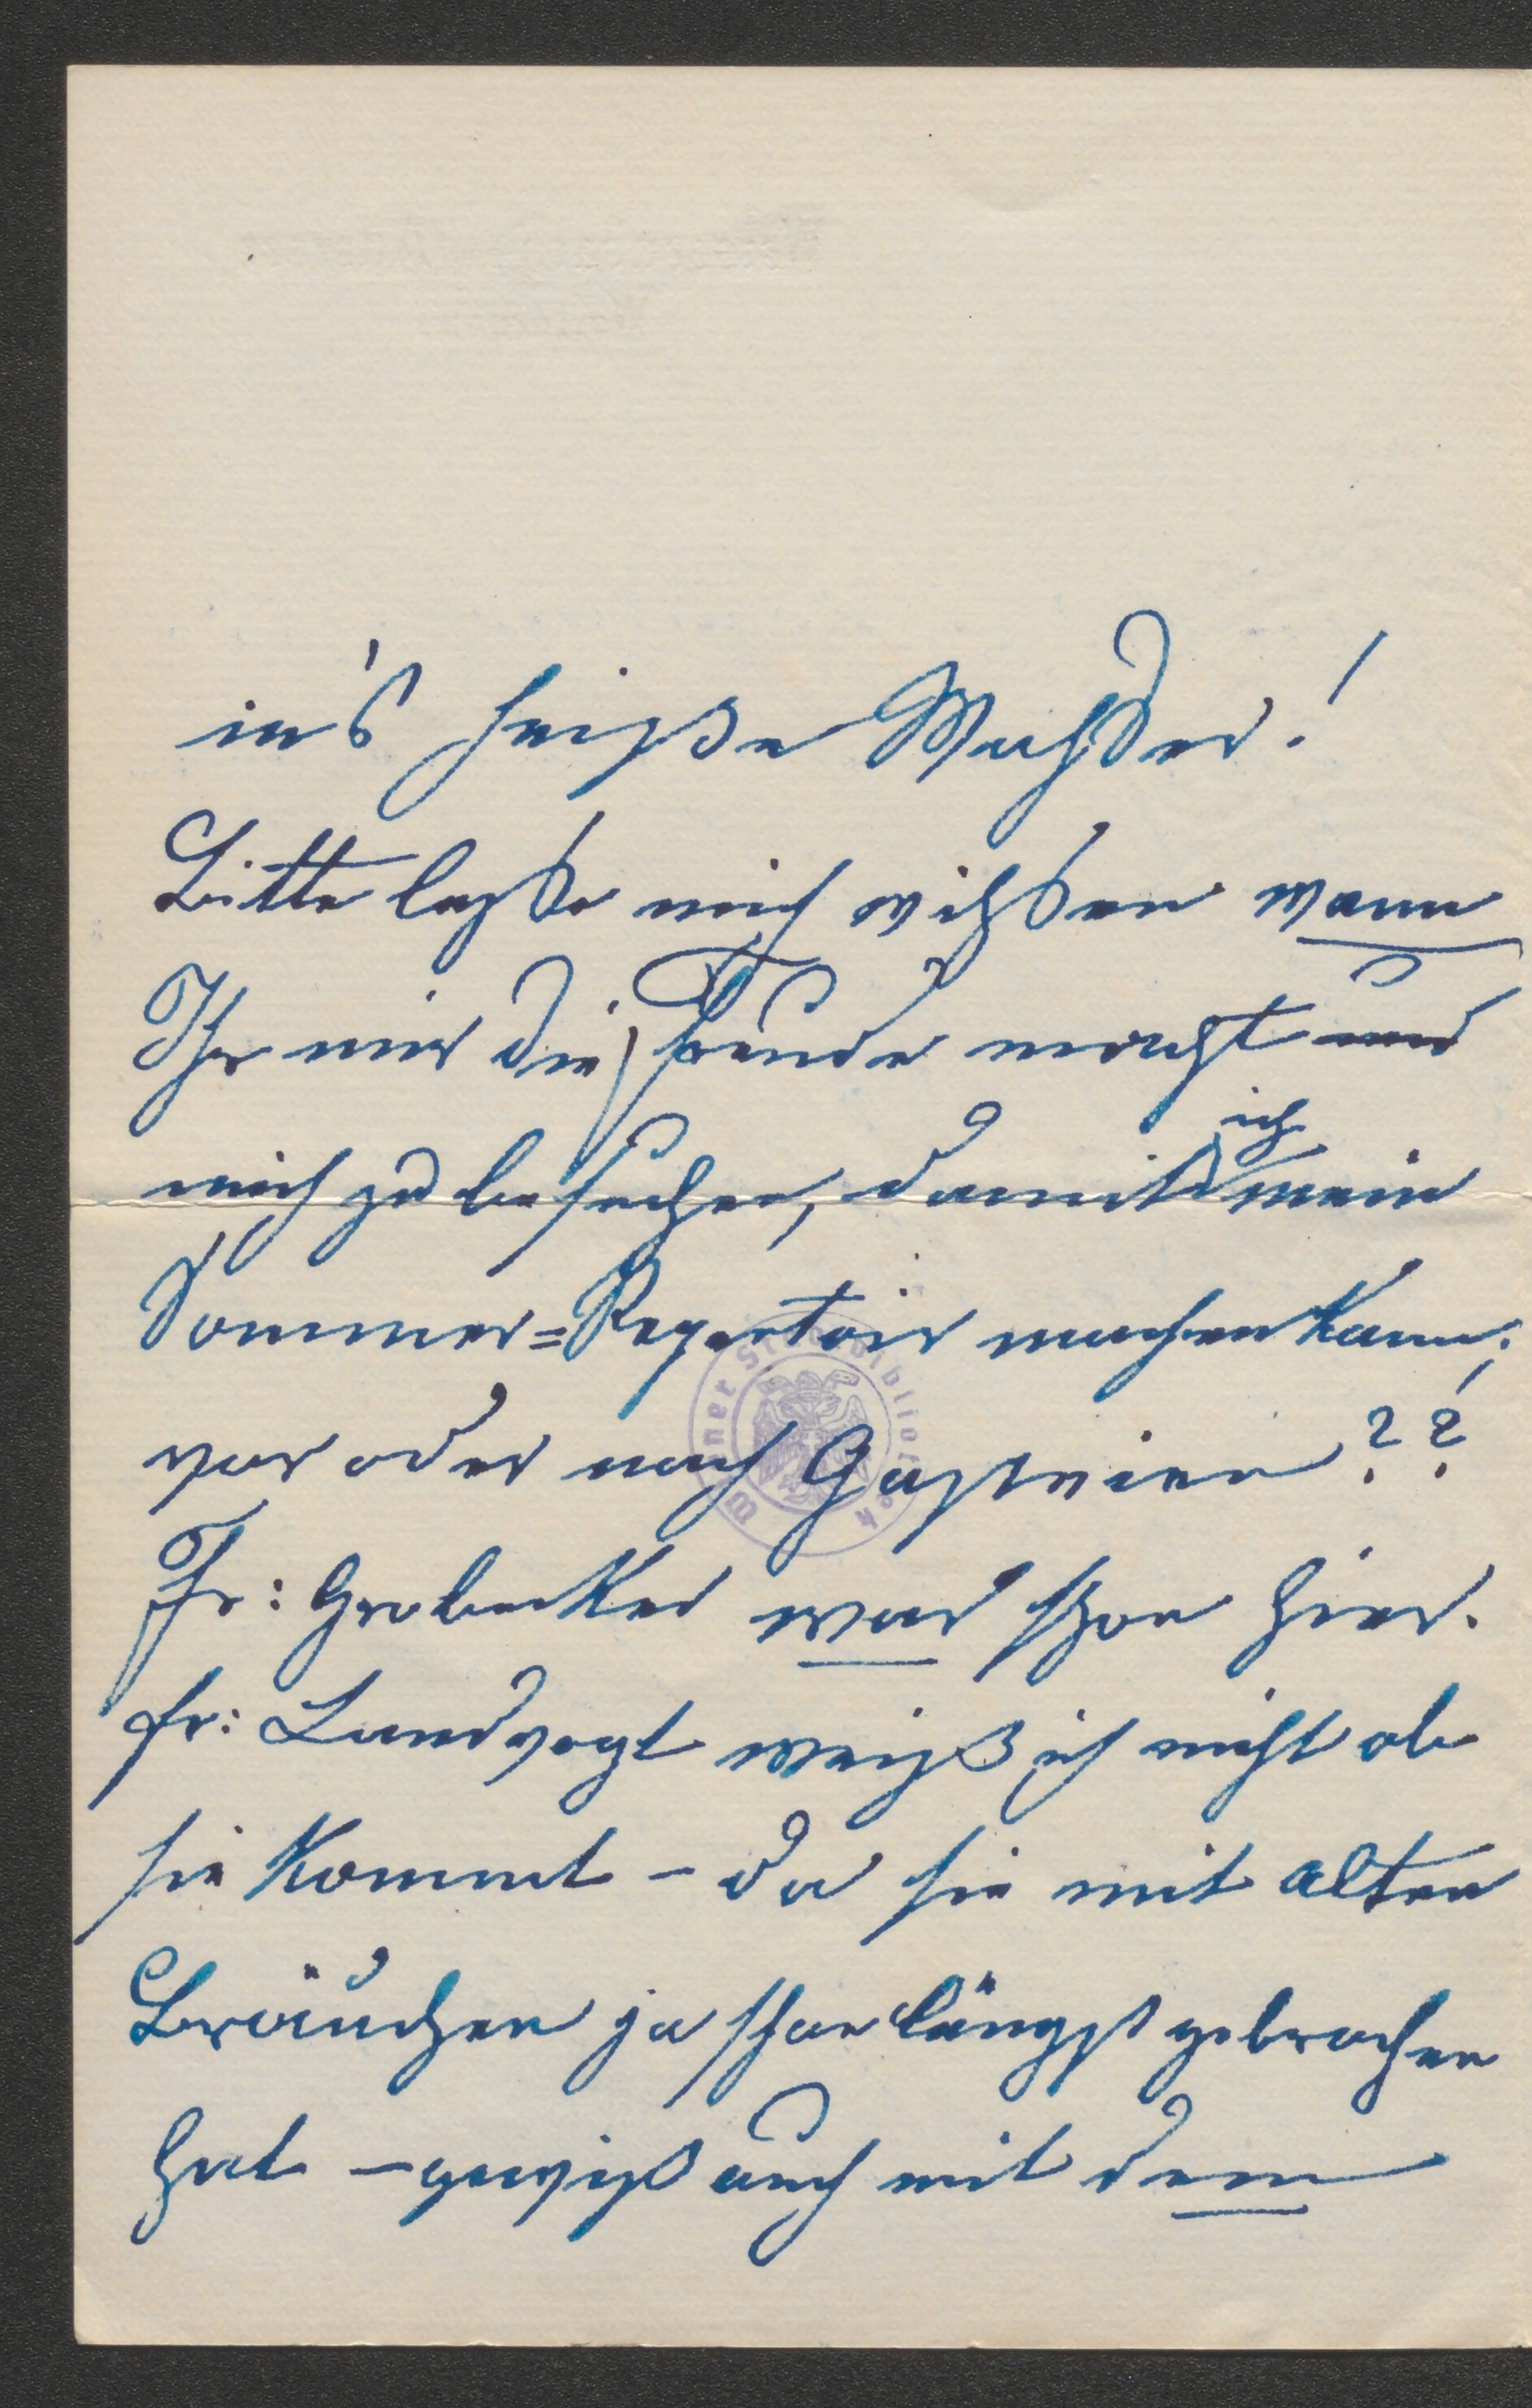 in's heiße Waßer!
Bitte laße mich wißen wann
Ihr mir die Freude macht und
mich zu besuchen, damit ich mein
Sommer=Repertoir machen kann;
vor oder nach Gastein??
Fr: Grobecker war schon hier.
Fr: Landvogt weiß ich nicht ob
sie kommt – da sie mit alten
Bräuchen ja schon längst gebrochen
hat – gewiß auch mit dem
Wiener Stadtbibliothek